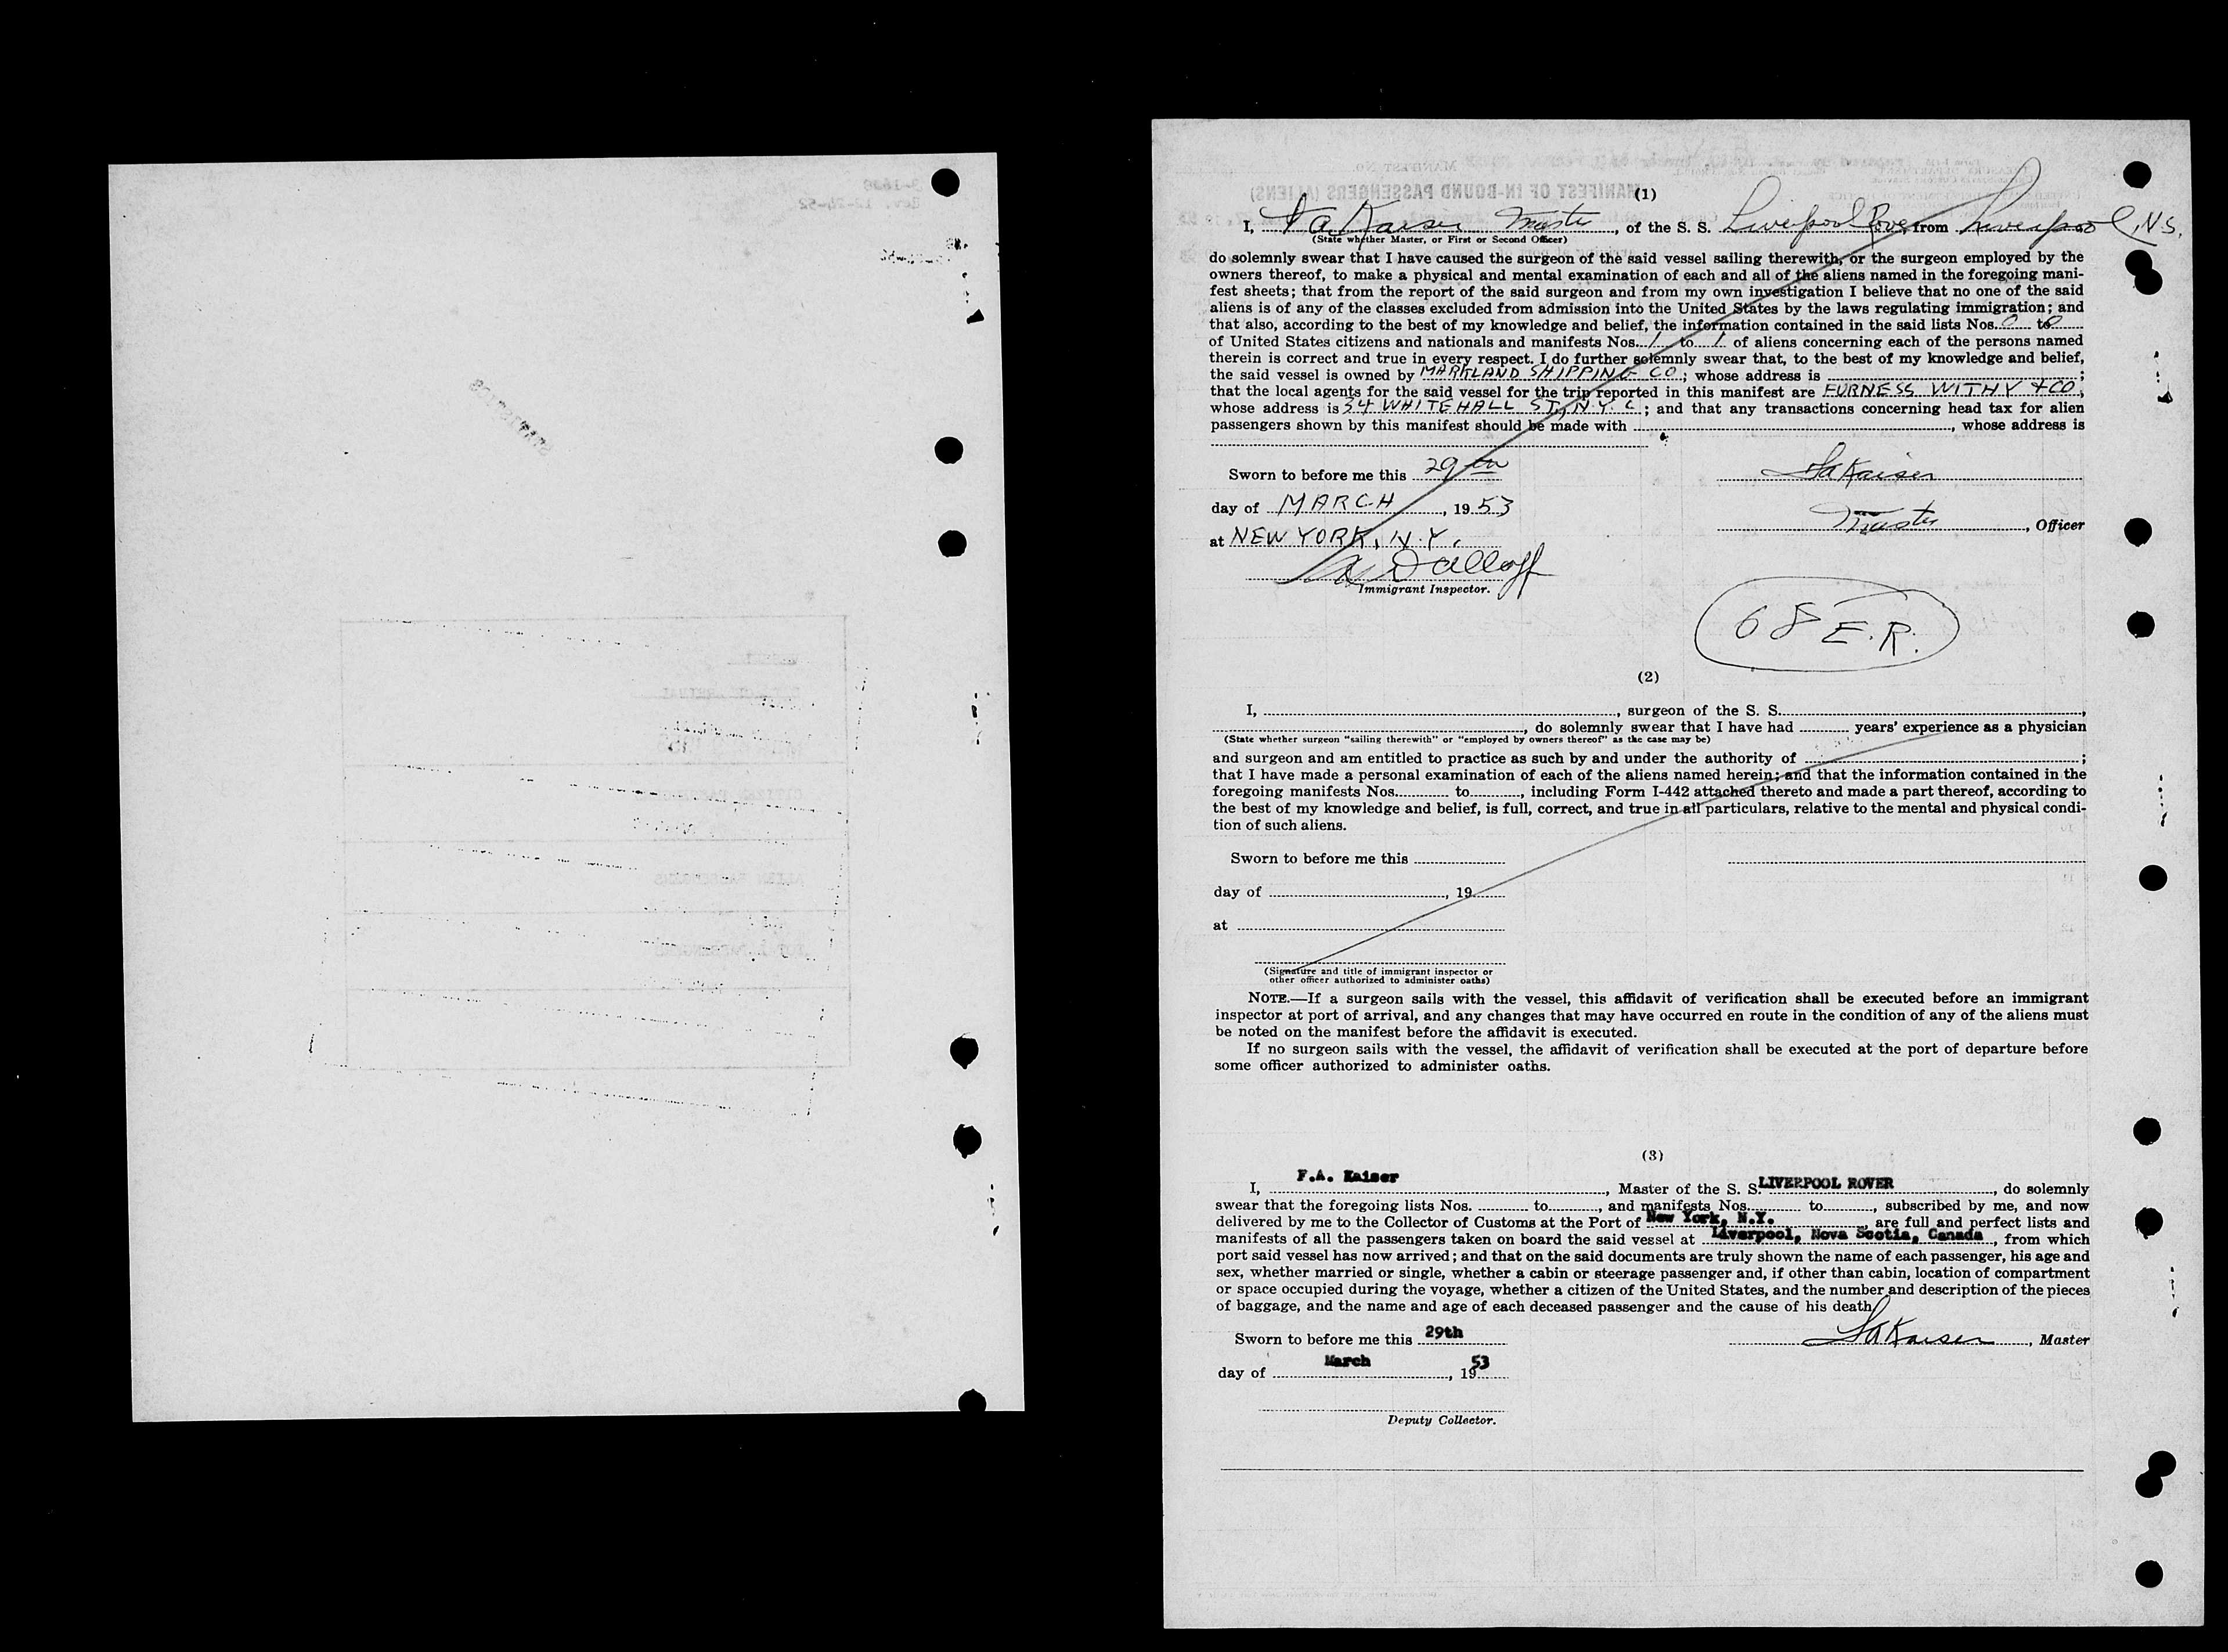 (1)
I, F A Kaiser Master, of the S. S. Liverpool Rover from Liverpool, N.S.
(State whether Master, or First or Second Officer)
do solemnly swear that I have caused the surgeon of the said vessel sailing therewith, or the surgeon employed by the
owners thereof, to make a physical and mental examination of each and all of the aliens named in the foregoing mani-
fest sheets; that from the report of the said surgeon and from my own investigation I believe that no one of the said
aliens is of any of the classes excluded from admission into the United States by the laws regulating immigration; and
that also, according to the best of my knowledge and belief, the information contained in the said lists Nos. 0 to 0
of United States citizens and nationals and manifests Nos. 1 to 1 of aliens concerning each of the persons named
therein is correct and true in every respect. I do further solemnly swear that, to the best of my knowledge and belief,
the said vessel is owned by MARKLAND SHIPPING CO; whose address is ;
that the local agents for the said vessel for the trip reported in this manifest are FURNESS WITHY + CO,
whose address is 34 WHITEHALL ST, N.Y.C; and that any transactions concerning head tax for alien
passengers shown by this manifest should be made with , whose address is
Sworn to before me this 29th
F A Kaiser
day of MARCH, 1953
Master, Officer
at NEW YORK, N.Y.
Immigrant Inspector.
68 E.R.
(2)
I, , surgeon of the S. S. ,
, do solemnly swear that I have had years' experience as a physician
(State whether surgeon "sailing therewith" or "employed by owners thereof" as the case may be)
and surgeon and am entitled to practice as such by and under the authority of ;
that I have made a personal examination of each of the aliens named herein; and that the information contained in the
foregoing manifests Nos. to , including Form I-442 attached thereto and made a part thereof, according to
the best of my knowledge and belief, is full, correct, and true in all particulars, relative to the mental and physical condi-
tion of such aliens.
Sworn to before me this
day of , 19
at
(Signature and title of immigrant inspector or
other officer authorized to administer oaths)
NOTE.—If a surgeon sails with the vessel, this affidavit of verification shall be executed before an immigrant
inspector at port of arrival, and any changes that may have occurred en route in the condition of any of the aliens must
be noted on the manifest before the affidavit is executed.
If no surgeon sails with the vessel, the affidavit of verification shall be executed at the port of departure before
some officer authorized to administer oaths.
(3)
I, F.A. Kaiser, Master of the S. S. LIVERPOOL ROVER, do solemnly
swear that the foregoing lists Nos. to , and manifests Nos. to , subscribed by me, and now
delivered by me to the Collector of Customs at the Port of New York, N.Y. , are full and perfect lists and
manifests of all the passengers taken on board the said vessel at Liverpool, Nova Scotia, Canada, from which
port said vessel has now arrived; and that on the said documents are truly shown the name of each passenger, his age and
sex, whether married or single, whether a cabin or steerage passenger and, if other than cabin, location of compartment
or space occupied during the voyage, whether a citizen of the United States, and the number and description of the pieces
of baggage, and the name and age of each deceased passenger and the cause of his death.
Sworn to before me this 29th
F A Kaiser, Master
day of March, 1953
Deputy Collector.